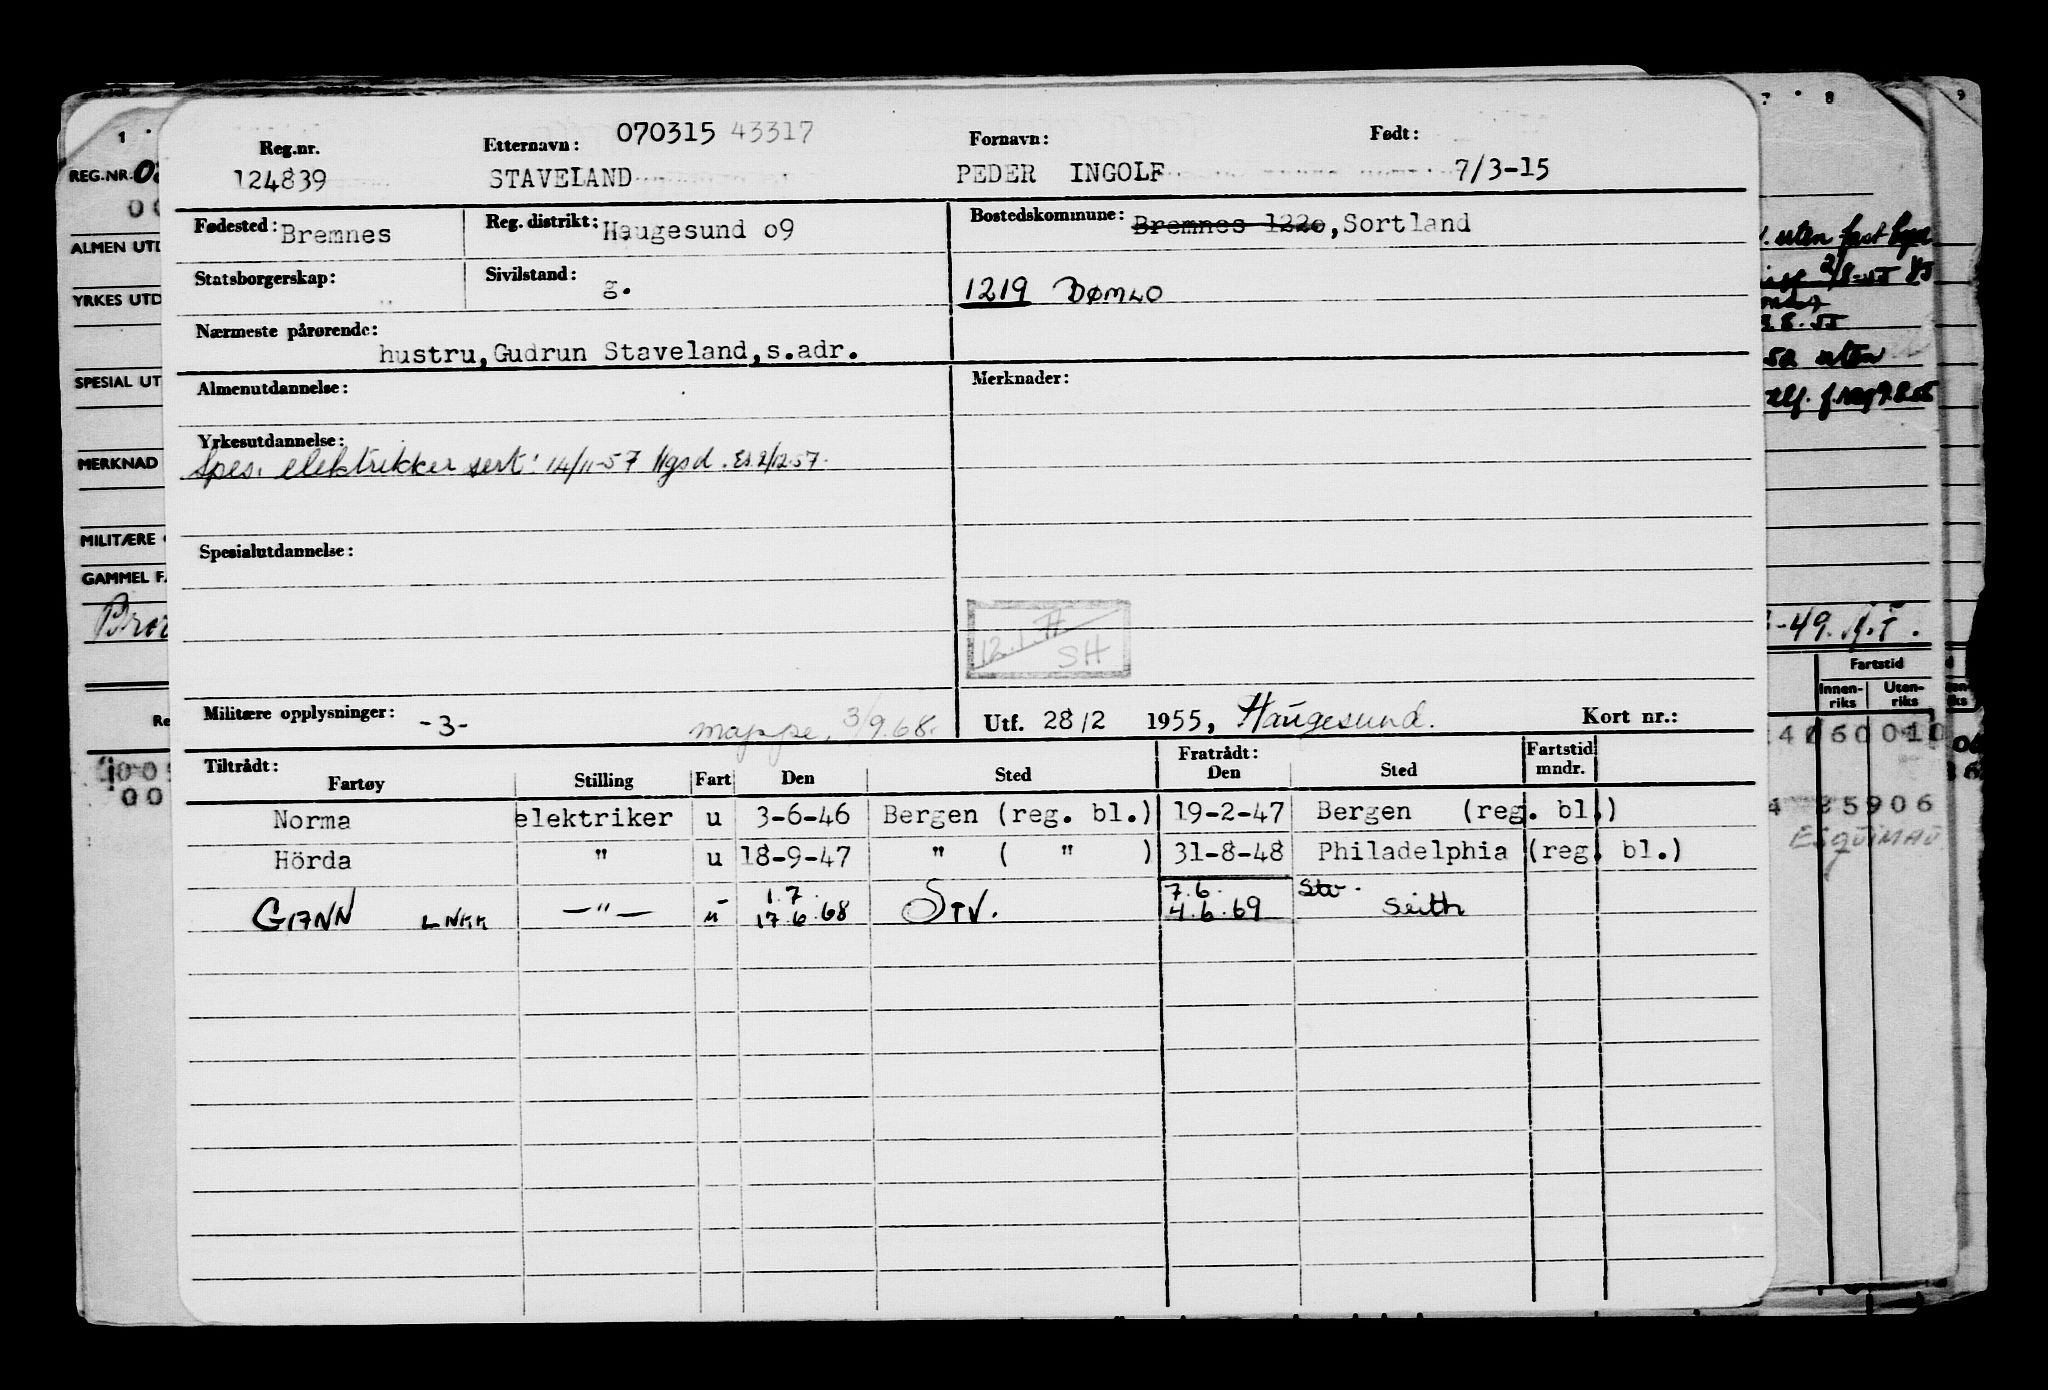 070315 43317
Reg.nr. Etternavn: Fornavn: Født:
124839 STAVELAND PEDER INGOLF 7/3-15
Fødested: Bremnes Reg. distrikt: Haugesund 09 Bostedskommune: Bremnes 1220, Sortland
Statsborgerskap: Sivilstand: g. 1219 BØMLO
Nærmeste pårørende:
hustru, Gudrun Staveland, s.adr.
Almenutdannelse: Merknader:
Yrkesutdannelse:
Spes. elektrikker sert: 14/11-57 Hgsd. Es 2/12-57.
Spesialutdannelse:
SH
Militære opplysninger: -3- mappe, 3/9.68. Utf. 28/2 1955, Haugesund. Kort nr.:
Tiltrådt: Fratrådt: Fartstid
Fartøy Stilling Fart Den Sted Den Sted mndr.
Norma elektriker u 3-6-46 Bergen (reg. bl.) 19-2-47 Bergen (reg. bl.)
Hörda " u 18-9-47 " ( " ) 31-8-48 Philadelphia (reg. bl.)
1.7. 7.6. Stv.
GANN LNKK —"— u 17.6.68 STV. 4.6.69 Seith
1
REG.NR.
ALMEN UTD
YRKES UTD
SPESIAL UT
MERKNAD
MILITÆRE
GAMMEL FA
7 8 9
uten fast
2/8-55
50 uten
-49.
Fartstid
Innen-riks Uten-riks
ESQUIMAU